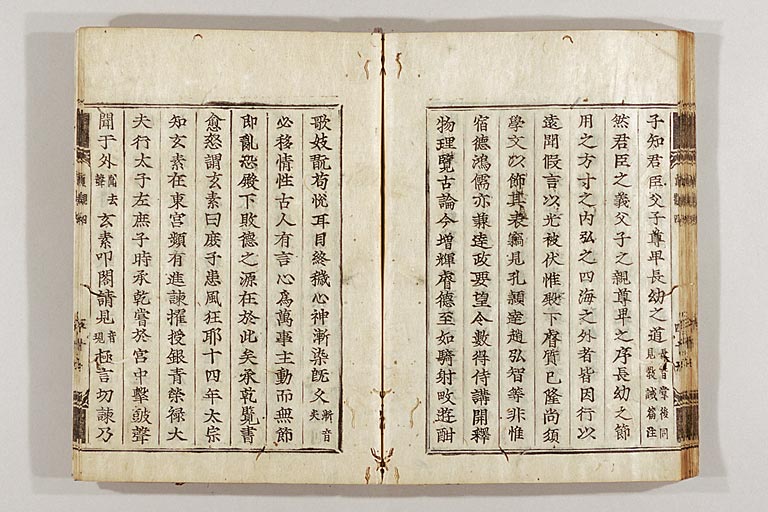 子知君臣父子尊卑長幼之道長音掌後同見敎誡篇注
然君臣之義父子之親尊卑之序長幼之節
用之方寸之內弘之四海之外者皆因行以
遠聞假言以光被伏惟殿下睿質已隆尚須
學文以飾其表竊見孔穎達趙弘智等非惟
宿德鴻儒亦兼達政要望令數得侍講開釋
物理覽古論今增輝睿德至如騎射畋遊酣
歌妓翫苟悅耳目終穢心神漸染旣久漸音尖
必移情性古人有言心爲萬事主動而無節
即亂恐殿下敗德之源在於此矣承乾覽書
愈怒謂玄素曰庶子患風狂耶十四年太宗
知玄素在東宮頻有進諫擢授銀青榮祿大
夫行太子左庶子時承乾嘗於宮中擊鼓聲
聞于外聞去聲玄素叩閤請見音現極言切諫乃